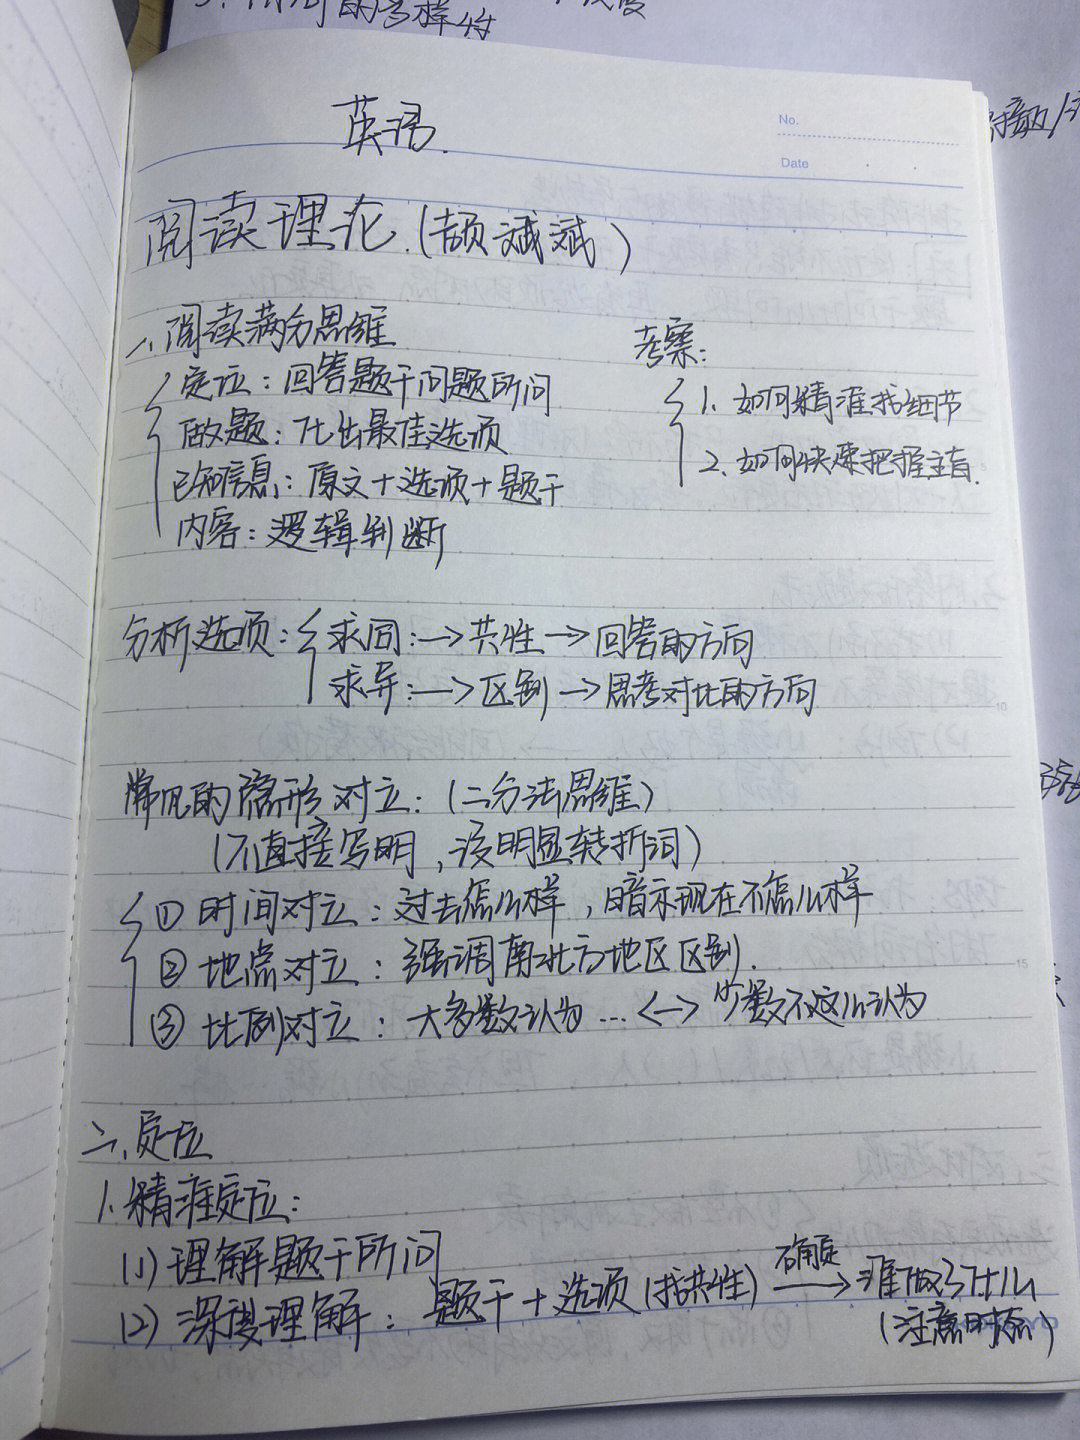 英语.
No.
Date
阅读理论.(颉斌斌)
一、阅读满分思维
定位：回答题干问题所问
做题：比出最佳选项
已知信息：原文+选项+题干
内容：逻辑判断
考察：
1、如何精准找细节
2、如何快速把握主旨.
分析选项：
求同：→共性→回答的方向
求异：→区别→思考对比的方向
常见的隐形对立：(二分法思维)
(不直接写明，没明显转折词)
① 时间对立：过去怎么样，暗示现在不怎么样
② 地点对立：强调南北方地区区别.
③ 比例对立：大多数认为…<->少数不这么认为
二、定位
1.精准定位：
(1)理解题干所问
(2)深度理解：题干+选项(找共性) 确定→谁做了什么
(注意时态)